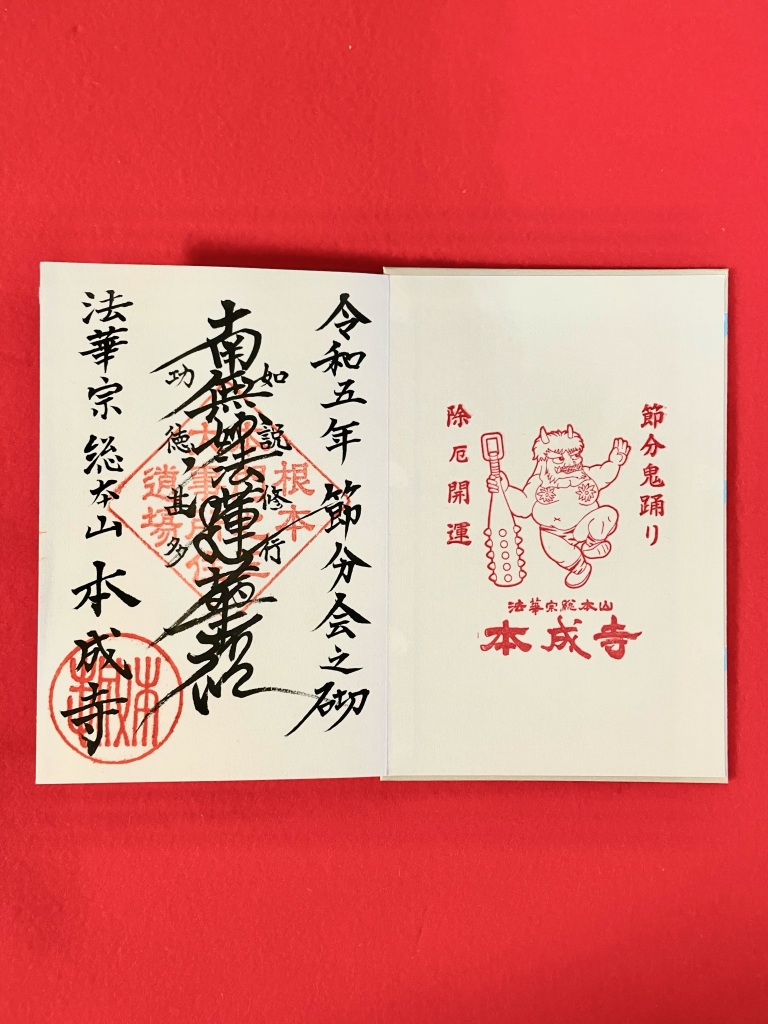 節分鬼踊り
除厄開運
法華宗総本山
本成寺
令和五年 節分会之砌
如説修行
南無妙法蓮華経
功徳甚多
根本
道場
法華宗 総本山 本成寺